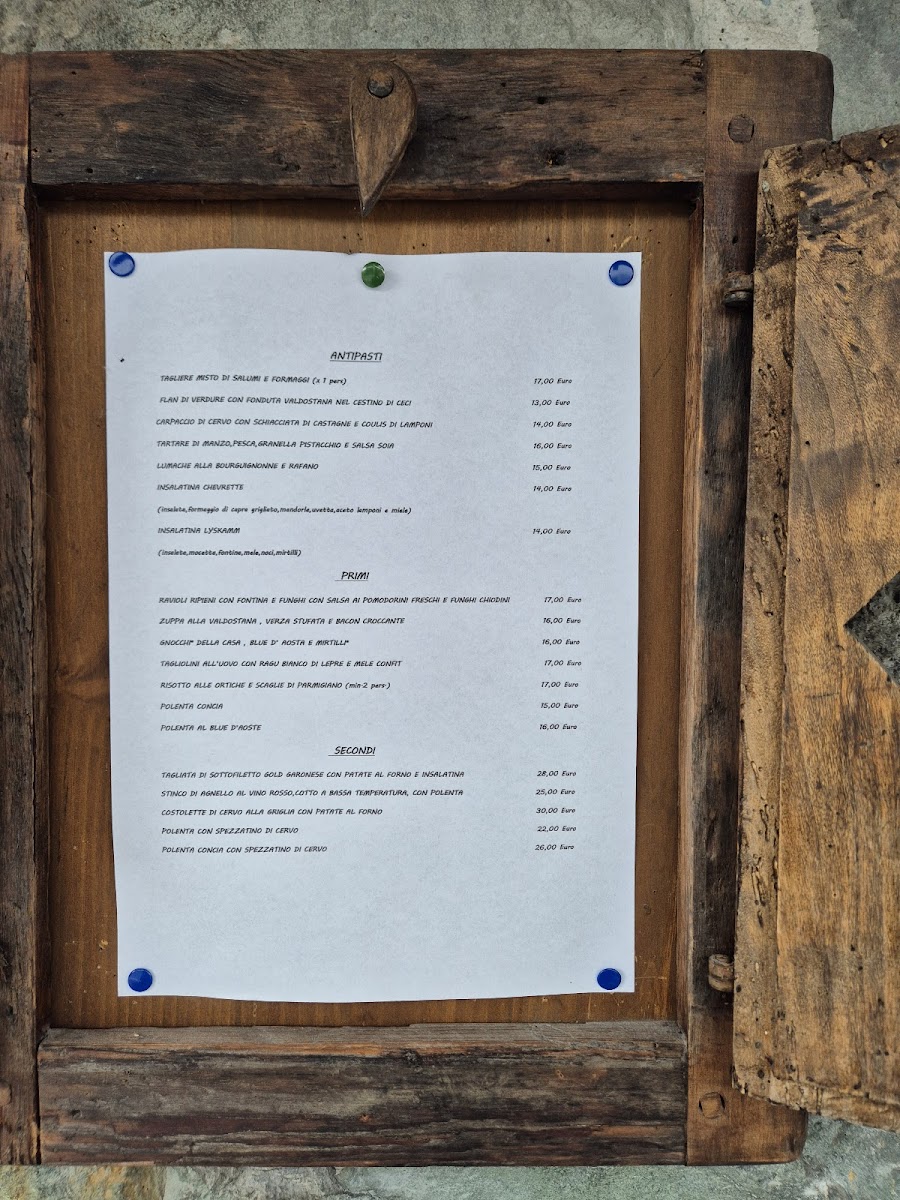 ANTIPASTI
TAGLIERE MISTO DI SALUMI E FORMAGGI (x 1 pers) 17,00 Euro
FLAN DI VERDURE CON FONDUTA VALDOSTANA NEL CESTINO DI CECI 13,00 Euro
CARPACCIO DI CERVO CON SCHIACCIATA DI CASTAGNE E COULIS DI LAMPONI 14,00 Euro
TARTARE DI MANZO,PESCA,GRANELLA PISTACCHIO E SALSA SOIA 16,00 Euro
LUMACHE ALLA BOURGUIGNONNE E RAFANO 15,00 Euro
INSALATINA CHEVRETTE 14,00 Euro
(insalata,formaggio di capra grigliato,mandorle,uvetta,aceto lamponi e miele)
INSALATINA LYSKAMM 14,00 Euro
(insalata,mocetta,fontina,mele,noci,mirtilli)
PRIMI
RAVIOLI RIPIENI CON FONTINA E FUNGHI CON SALSA AI POMODORINI FRESCHI E FUNGHI CHIODINI 17,00 Euro
ZUPPA ALLA VALDOSTANA , VERZA STUFATA E BACON CROCCANTE 16,00 Euro
GNOCCHI* DELLA CASA , BLUE D' AOSTA E MIRTILLI* 16,00 Euro
TAGLIOLINI ALL'UOVO CON RAGU BIANCO DI LEPRE E MELE CONFIT 17,00 Euro
RISOTTO ALLE ORTICHE E SCAGLIE DI PARMIGIANO (min·2 pers·) 17,00 Euro
POLENTA CONCIA 15,00 Euro
POLENTA AL BLUE D'AOSTE 16,00 Euro
SECONDI
TAGLIATA DI SOTTOFILETTO GOLD GARONESE CON PATATE AL FORNO E INSALATINA 28,00 Euro
STINCO DI AGNELLO AL VINO ROSSO,COTTO A BASSA TEMPERATURA, CON POLENTA 25,00 Euro
COSTOLETTE DI CERVO ALLA GRIGLIA CON PATATE AL FORNO 30,00 Euro
POLENTA CON SPEZZATINO DI CERVO 22,00 Euro
POLENTA CONCIA CON SPEZZATINO DI CERVO 26,00 Euro